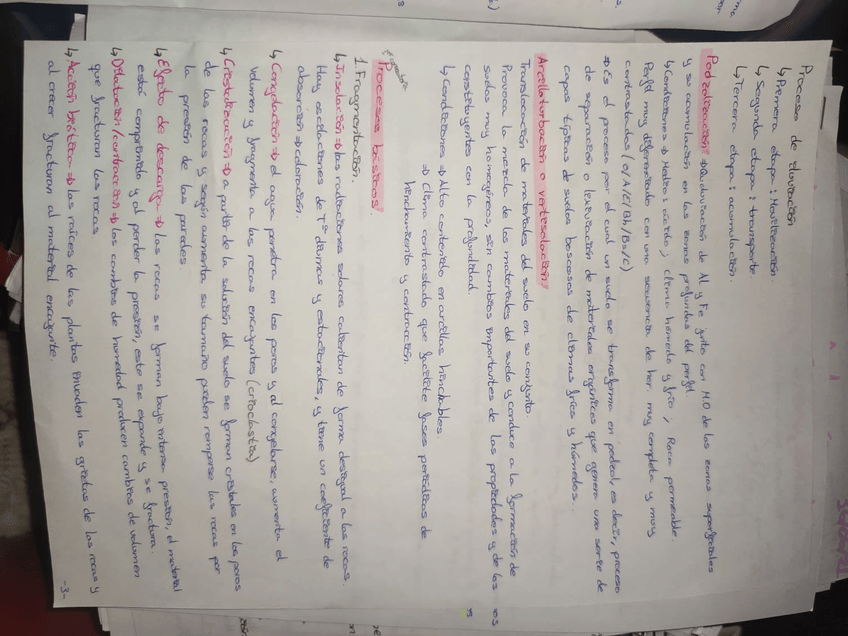 Proceso de eluviación
↳ Primera etapa: Movilización.
↳ Segunda etapa: transporte
↳ Tercera etapa: acumulación.
Podzolización: ⇒ Queluviación de Al y Fe junto con M.O de las zonas superficiales
y su acumulación en las zonas profundas del perfil
↳ Condiciones ⇒ Medio: ácido, clima húmedo y frío, Roca permeable.
Perfil muy diferenciado con una secuencia de hor. muy completa y muy
contrastados (O/A/E/Bh/Bs/C)
⇒ Es el proceso por el cual un suelo se transforma en podzol, es decir, proceso
de separación o lexiviación de materiales orgánicos que genera una serie de
capas típicas de suelos boscosos de climas fríos y húmedos.
Arcilloturbación o vertisolación
Translocación de materiales del suelo en su conjunto.
Provoca la mezcla de los materiales del suelo y conduce a la formación de
suelos muy homogéneos, sin cambios importantes de las propiedades y de los
constituyentes con la profundidad.
↳ Condiciones ⇒ Alto contenido en arcillas hinchables
⇒ Clima contrastado que facilite fases periódicas de
hinchamiento y contracción.
Procesos básicos.
1. Fragmentación.
↳ Insolación ⇒ las radiaciones solares calientan de forma desigual a las rocas.
Hay oscilaciones de Tª diurnas y estacionales, y tiene un coeficiente de
absorción ⇒ coloración.
↳ Congelación ⇒ el agua penetra en los poros y al congelarse, aumenta el
volumen y fragmenta a las rocas encajantes (crioclastia)
↳ Cristalización ⇒ a partir de la solución del suelo se forman cristales en los poros
de las rocas y según aumenta su tamaño pueden romperse las rocas por
la presión de las paredes.
↳ Efecto de descarga ⇒ las rocas se forman bajo intensa presión, el material
está comprimido y al perder la presión, este se expande y se fractura.
↳ Dilatación/contracción ⇒ los cambios de humedad producen cambios de volumen
que fracturan las rocas
↳ Acción biótica ⇒ las raíces de las plantas invaden las grietas de las rocas y
al crecer fracturan al material encajante.
-3-